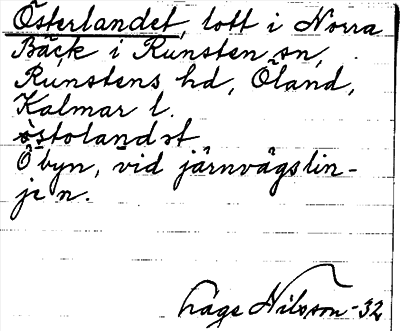 Österlandet, lott i Norra
Bäck i Runsten sn,
Runstens hd, Öland,
Kalmar l.
östolandət
Ö byn, vid järnvägslin-
jen.
Åge Nilsson -32